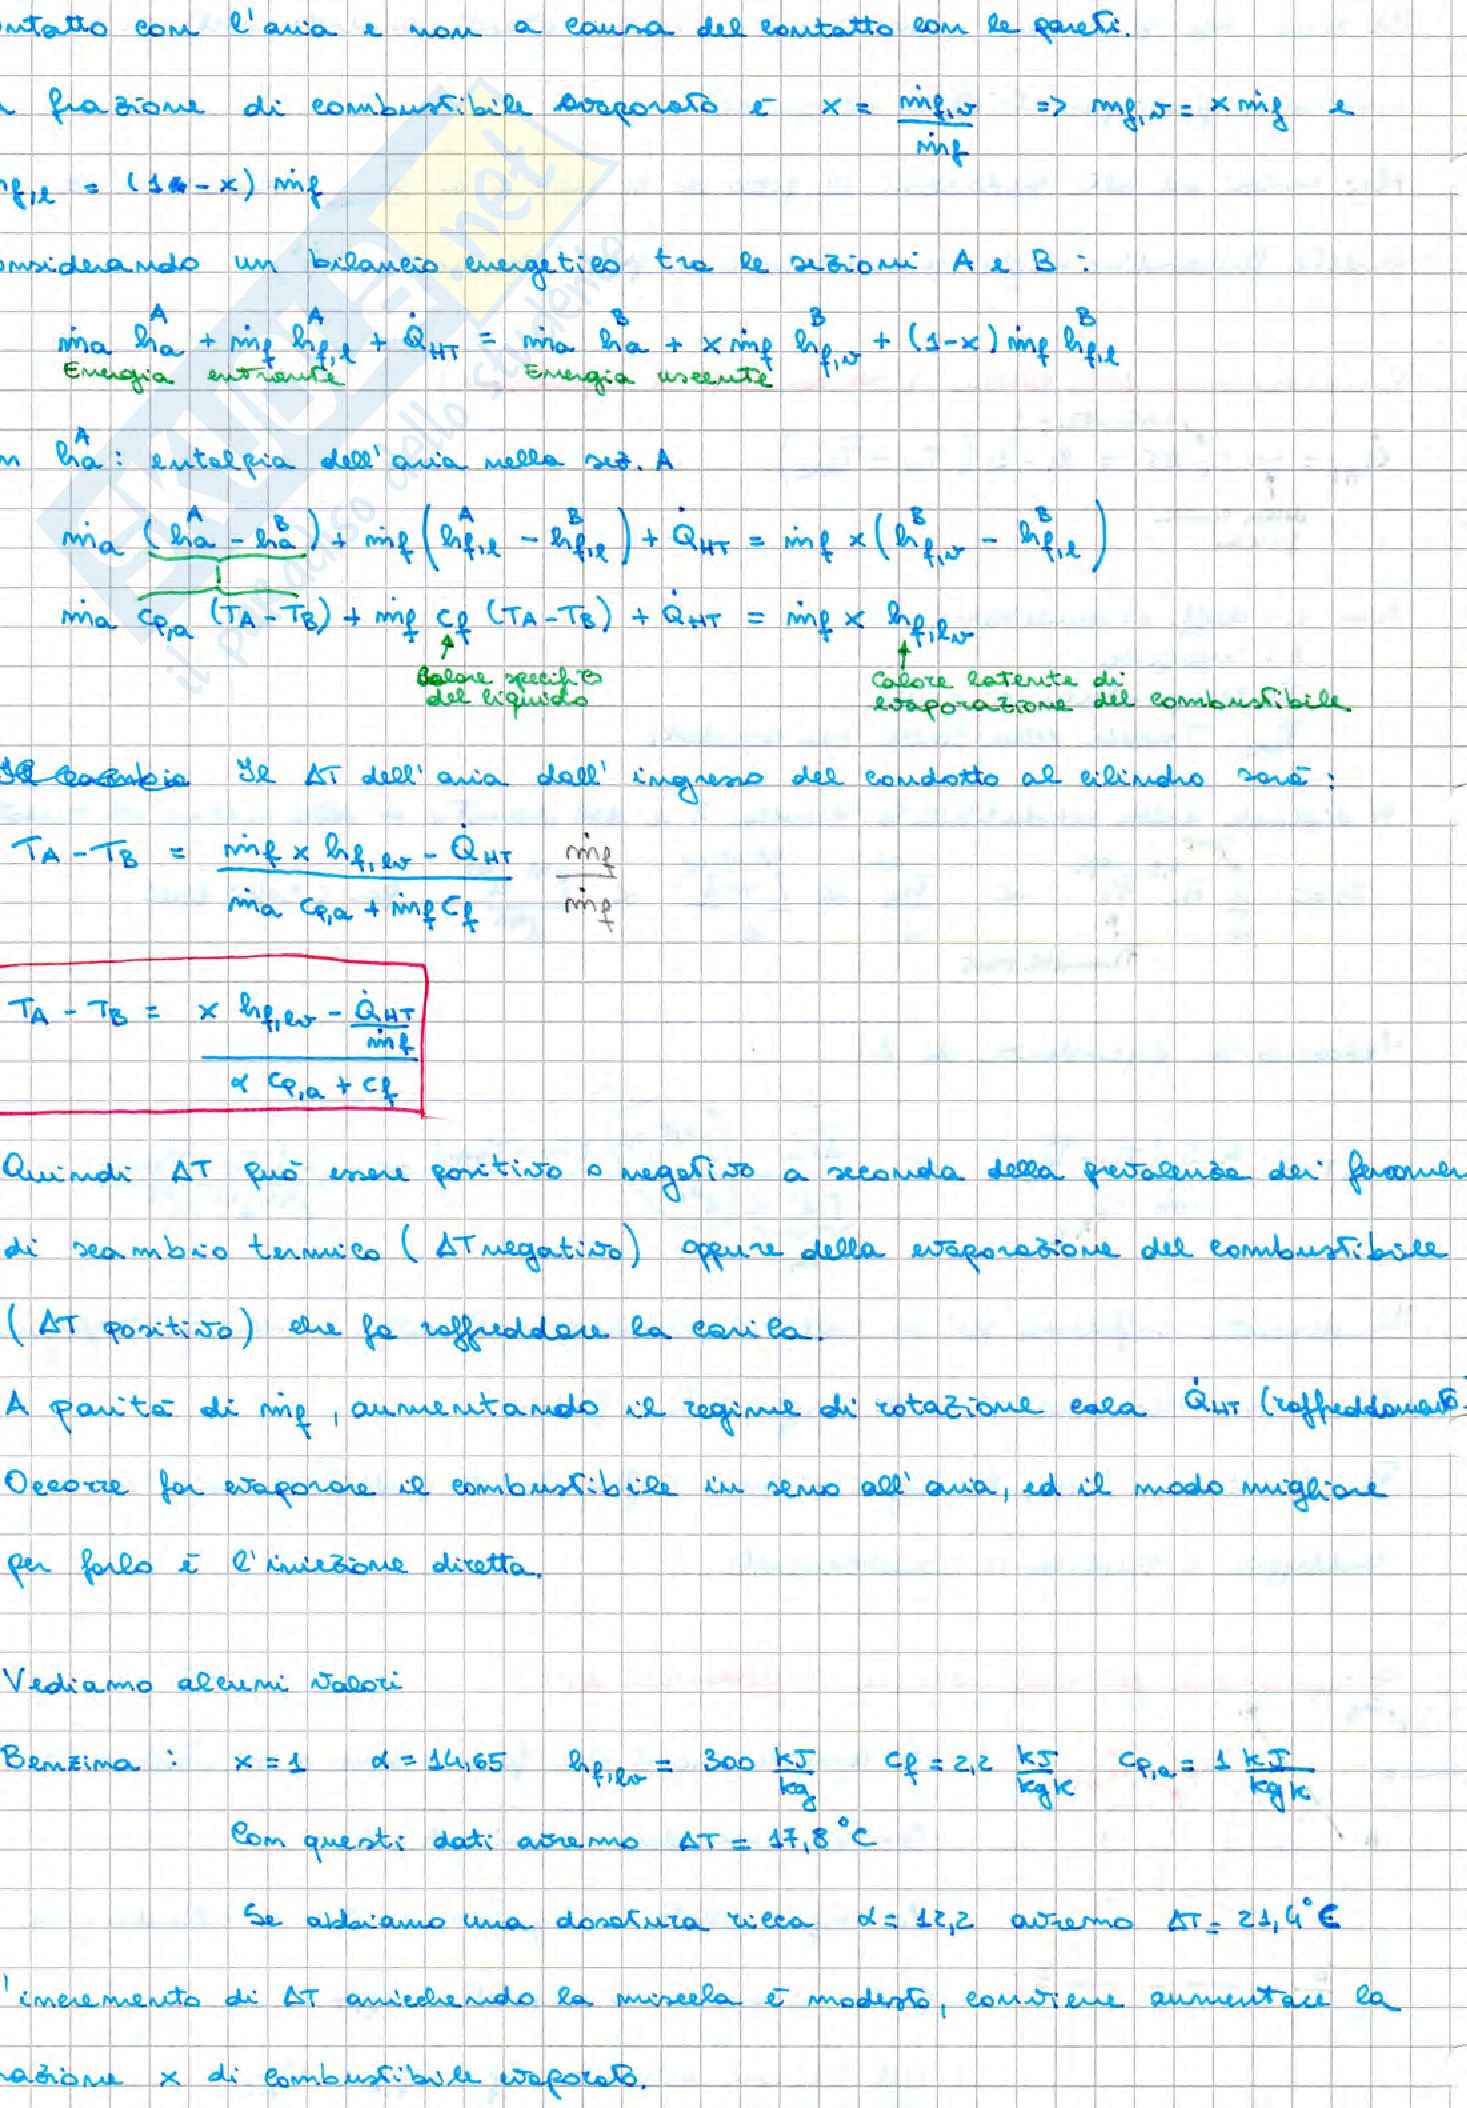 ntatto con l'aria e non a causa del contatto con le pareti.
a frazione di combustibile evaporato è x = ṁf,v / ṁf => mf,v = x ṁf e
mf,l = (1-x) ṁf
onsiderando un bilancio energetico tra le sezioni A e B :
ṁa ha^A + ṁf hf,l^A + Q̇HT = ṁa ha^B + x ṁf hf,v^B + (1-x) ṁf hf,l^B
Energia entrante Energia uscente
n ha^A : entalpia dell'aria nella sez. A
ṁa (ha^A - ha^B) + ṁf (hf,l^A - hf,l^B) + Q̇HT = ṁf x (hf,v^B - hf,l^B)
ṁa cp,a (TA - TB) + ṁf cf (TA - TB) + Q̇HT = ṁf x hf,lv
Calore specifico del liquido
Calore latente di evaporazione del combustibile
Il ΔT dell'aria dall'ingresso del condotto al cilindro sarà :
TA - TB = (ṁf x hf,lv - Q̇HT) / (ṁa cp,a + ṁf cf) ṁf / ṁf
TA - TB = (x hf,lv - Q̇HT / ṁf) / (α cp,a + cf)
Quindi ΔT può essere positivo o negativo a seconda della prevalenza dei fenomen
di scambio termico ( ΔT negativo) oppure della evaporazione del combustibile
( ΔT positivo) che fa raffreddare la carica.
A parità di ṁf , aumentando il regime di rotazione cala Q̇HT (raffreddamento).
Occorre far evaporare il combustibile in seno all'aria, ed il modo migliore
per farlo è l'iniezione diretta.
Vediamo alcuni valori
Benzina : x = 1 α = 14,65 hf,lv = 300 kJ/kg cf = 2,2 kJ/kg K cp,a = 1 kJ/kg K
Con questi dati avremo ΔT = 17,8 °C
Se abbiamo una dosatura ricca α = 12,2 avremo ΔT = 21,4 °C
'incremento di ΔT arricchendo la miscela è modesto, conviene aumentare la
razione x di combustibile evaporato.
SKUOLA.net
il paradiso dello studente